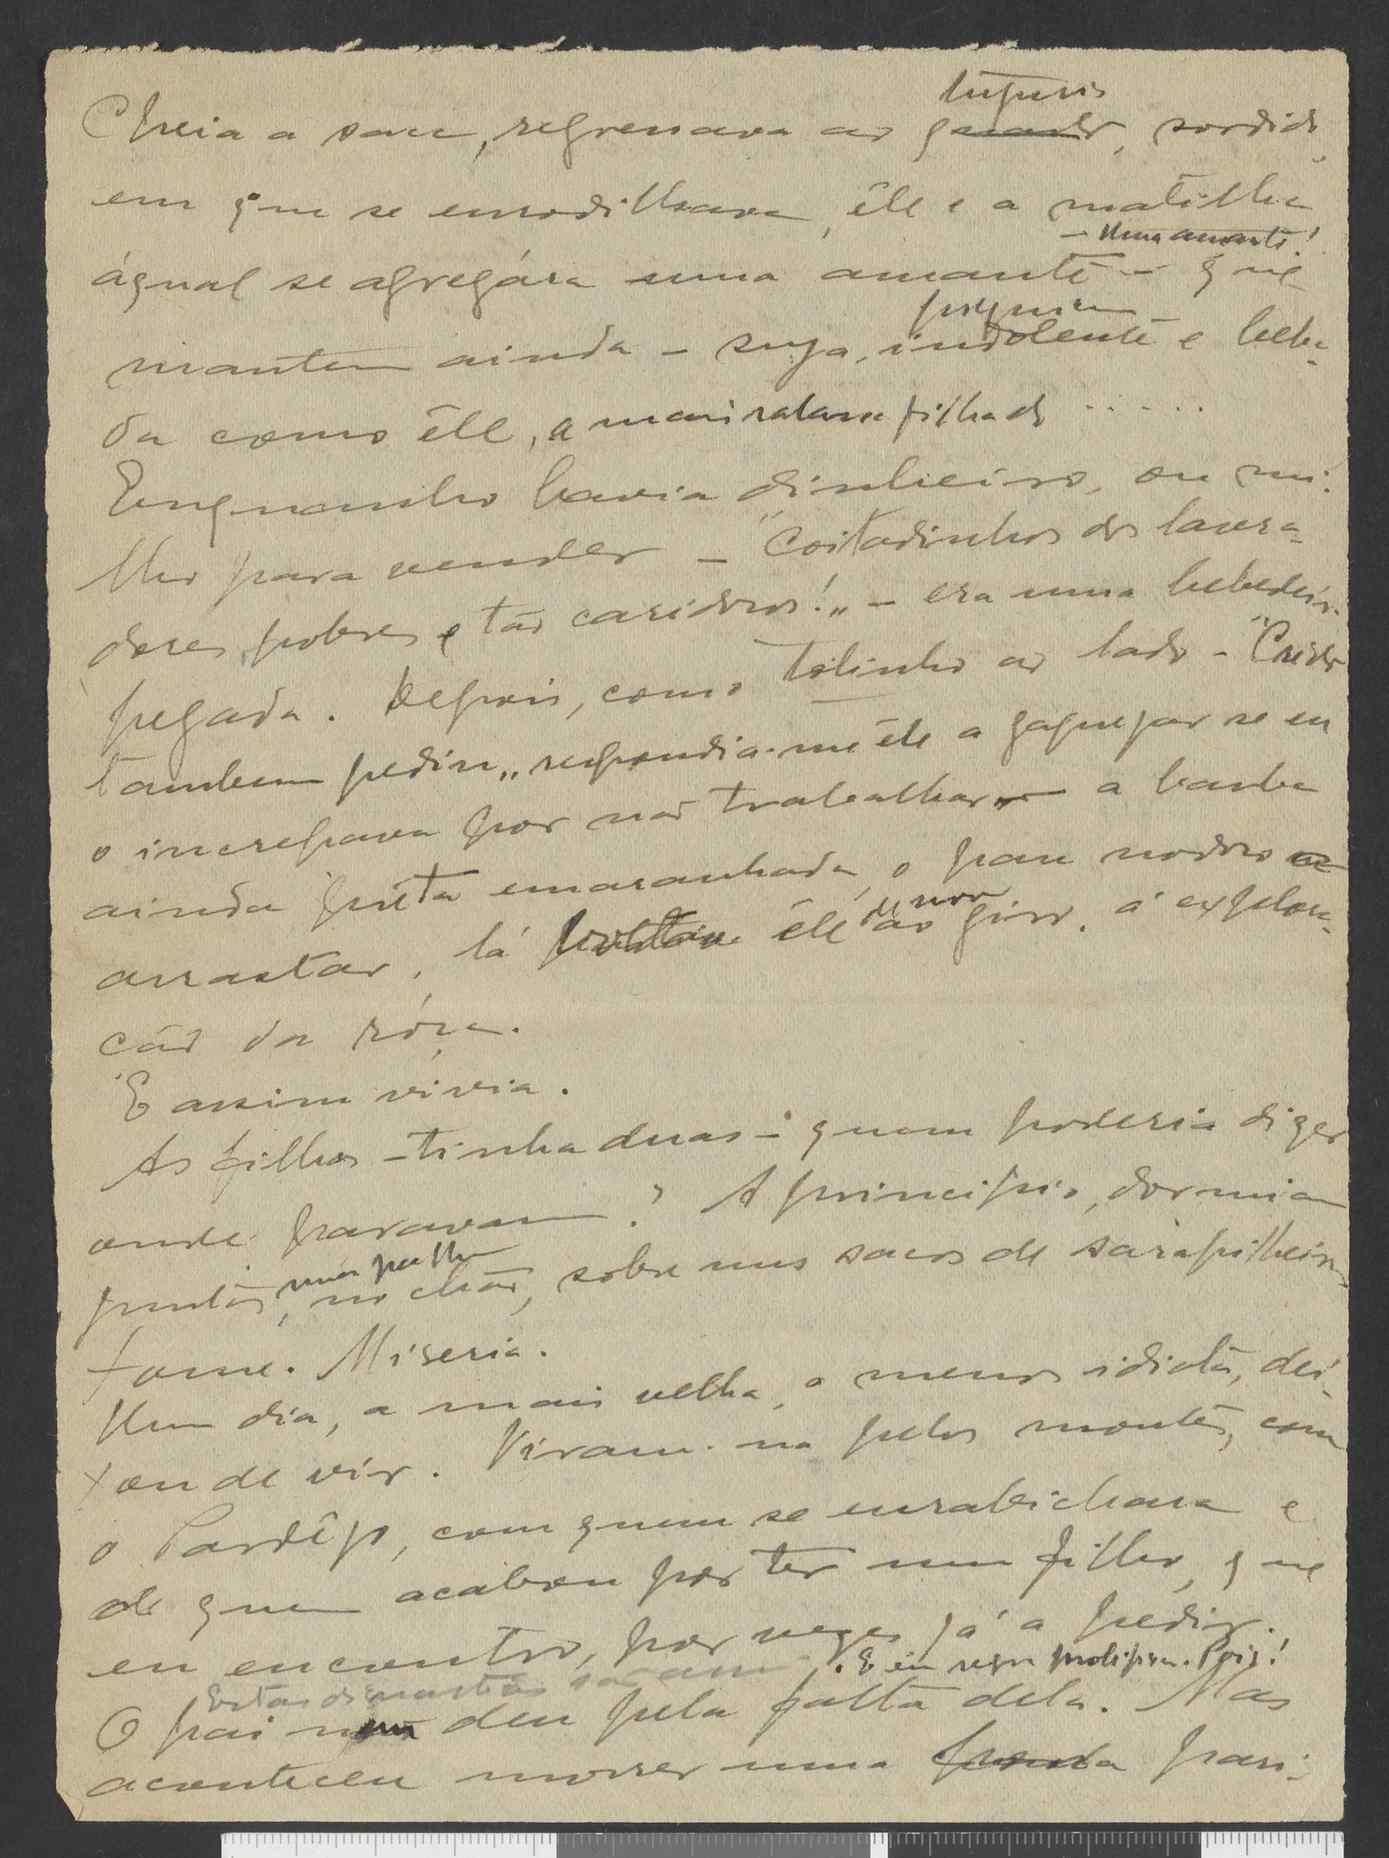 tugurio
Cheia a saca, regressava ao sordido
em que se enrodilhava, êle e a matilha
- Uma amante!
áqual se agregára uma amante - que
mantem ainda - suja, indolente e beba-
da como êle, a mais filha de .....
Emquanto havia dinheiro, ou mi-
lho para vender - "Coitadinhos dos lavra-
dores, pobres e tão caridosos!" - era uma bebedeira
pegada. Depois, como Tolinho ao lado -
tambem pediu", respondia-me êle a gaguejar se eu
o increpava por não trabalhar - a barba
ainda preta emaranhada, o pau nodoso a
de novo
arrastar, lá voltava êle ao giro, á explora-
cão da róza.
E assim vivia.
As filhas - tinha duas - quem poderia dizer
onde paravam? A principio, dormiam
numa palha
juntas, no chão, sobre uns sacos de sarapilheira
Fome. Miseria.
Um dia, a mais velha, a menos idiota, dei-
xou de vir. Viram-na pelos montes, com
o Pardêjo, com quem se enrabichara e
de quem acabou por ter um filho, que
eu encontro, por vezes já a pedir.
Estas dinastias são assim. E em regra prolificas. Pois!
O pai nem deu pela falta dela. Mas
aconteceu morrer uma pari-